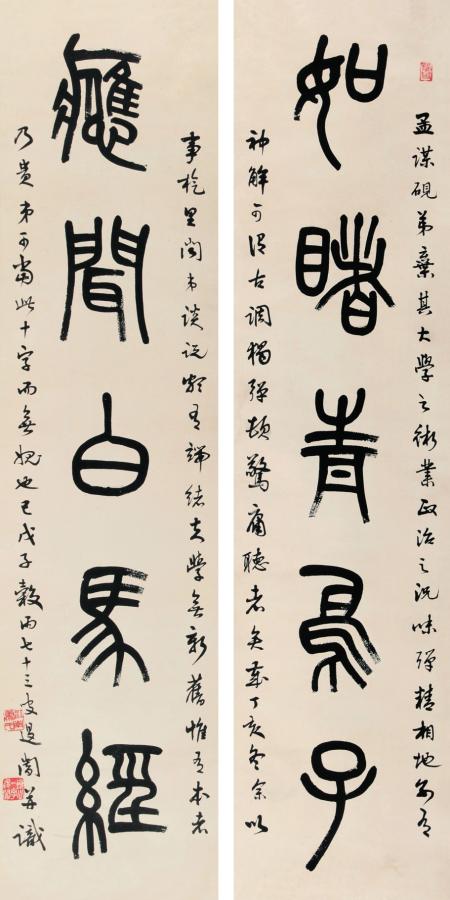 孟謀硯弟棄其大學之術業政治之況味殫精相地別有
如睹青烏子
神解可謂古調獨彈頓驚庸聽者矣歲丁亥冬余以
事旋里聞弟談說頗有端緒知學無新舊惟有本者
應聞白馬經
乃貴弟可當此十字而無愧也已戊子穀雨七十三叟闇并識